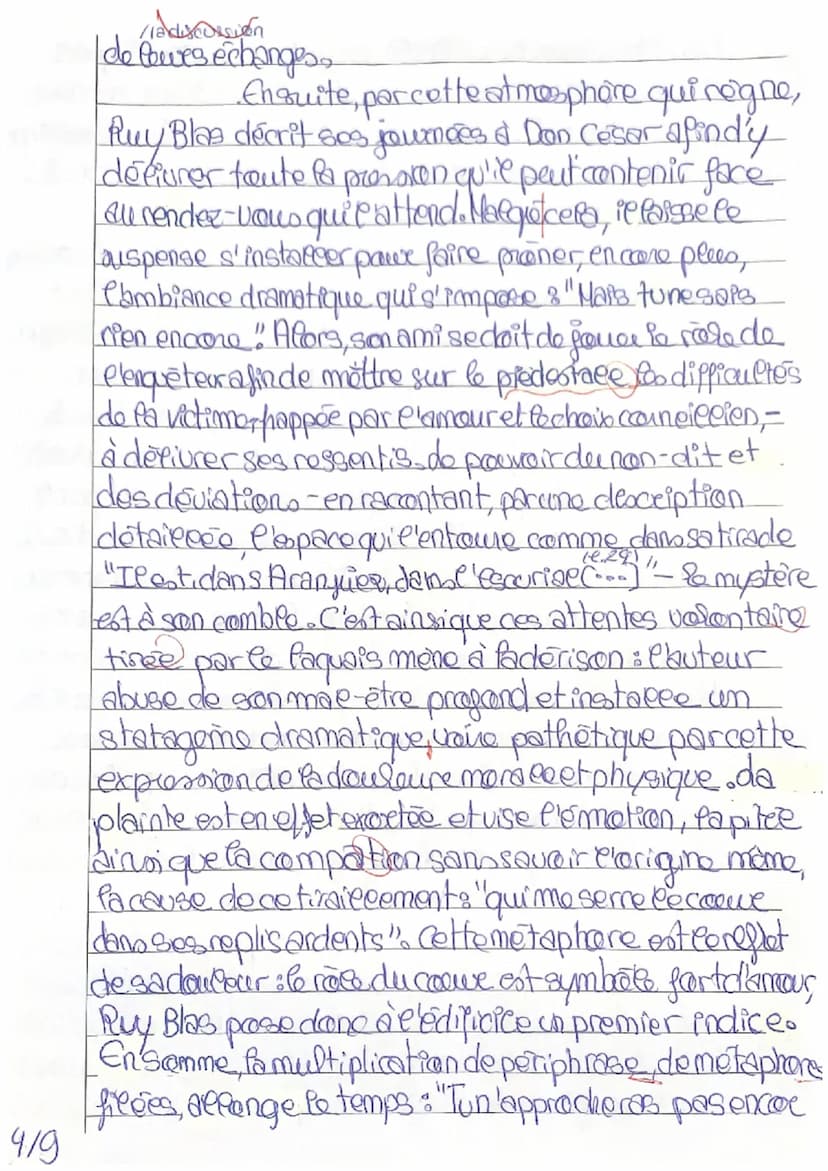 /la discussion
de leurs échanges.
Ensuite, par cette atmosphère qui règne,
Ruy Blas décrit ses journées à Don César afin d'y
délivrer toute la pression qu'il peut contenir face
au rendez-vous qui l'attend. Malgré cela, il laisse le
suspense s'installer pour faire prôner, encore plus,
l'ambiance dramatique qui s'impose : "Mais tu ne sais
rien encore". Alors, son ami se doit de jouer le rôle de
l'enquêteur afin de mettre sur le piédestale les difficultés
de la victime, happée par l'amour et le choix cornéillien,-
à délivrer ses ressentis. Le pouvoir du non-dit et
des déviations - en racontant, par une description
détaillée, l'espace qui l'entoure comme dans sa tirade
(l.29)
"Il est dans Aranjuez, dans l'escurial [...]" - le mystère
est à son comble. C'est ainsi que ces attentes volontaire
tirée par le laquais mène à la dérison : l'auteur
abuse de son mal-être profond et installe un
statagème dramatique, voire pathétique par cette
expression de la douleure morale et physique. La
plainte est en effet exactée et vise l'émotion, la pitée
ainsi que la compation sans savoir l'origine même,
la cause de ce tiraillements "qui me serre le coeur
dans ses replis ardents". Cette métaphore est le reflet
de sa douleur : le rôle du coeur est symbôle fort d'amour,
Ruy Blas pose donc à l'édificice un premier indice.
En somme, la multiplication de périphrase, de métaphores
filées, allonge le temps : "Tu n'approcheras pas encor
4/9